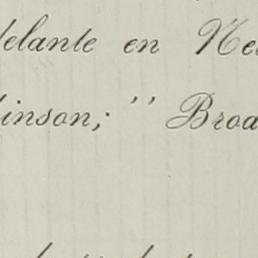 delante en Ne
inson; " Broa